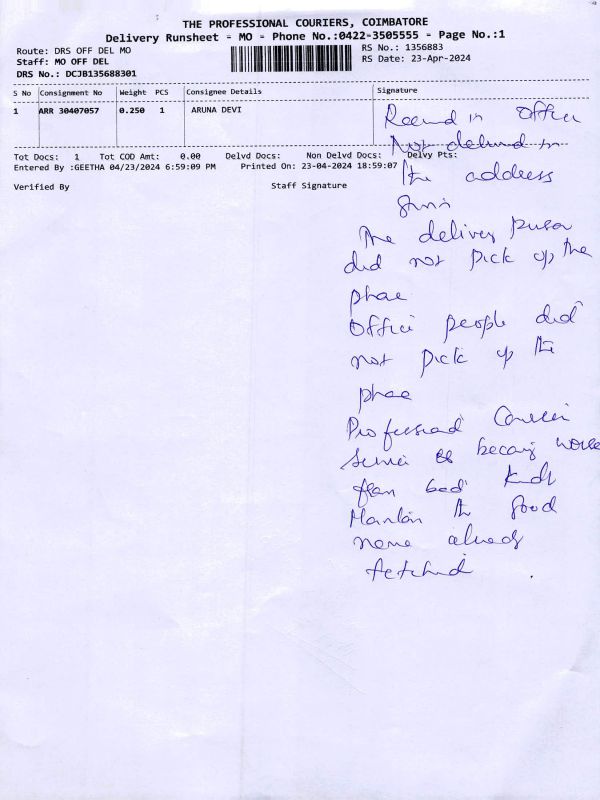 THE PROFESSIONAL COURIERS, COIMBATORE
Delivery Runsheet - MO - Phone No.:0422-3505555 - Page No.:1
Route: DRS OFF DEL MO
RS No.: 1356883
Staff: MO OFF DEL
RS Date: 23-Apr-2024
DRS No.: DCJB135688301
S No Consignment No Weight PCS Consignee Details Signature
1 ARR 30407057 0.250 1 ARUNA DEVI
Tot Docs: 1 Tot COD Amt: 0.00 Delvd Docs: Non Delvd Docs: Delvy Pts:
Entered By :GEETHA 04/23/2024 6:59:09 PM Printed On: 23-04-2024 18:59:07
Verified By Staff Signature
in office
Not in
the address
The delivery person
did not pick up the
phone
Office people did
not pick up the
phone
Professional Courier
Service is becoming worse
than bad
Maintain the good
name already
fetched